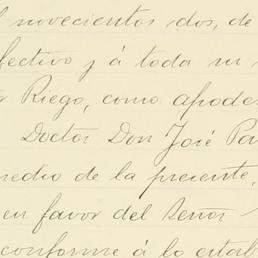 l novecientos dos, de
fectivo y á toda su
Riego, como apode
Doctor Don José Pa
medio de la presente,
en favor del Señor
conforme á lo estab